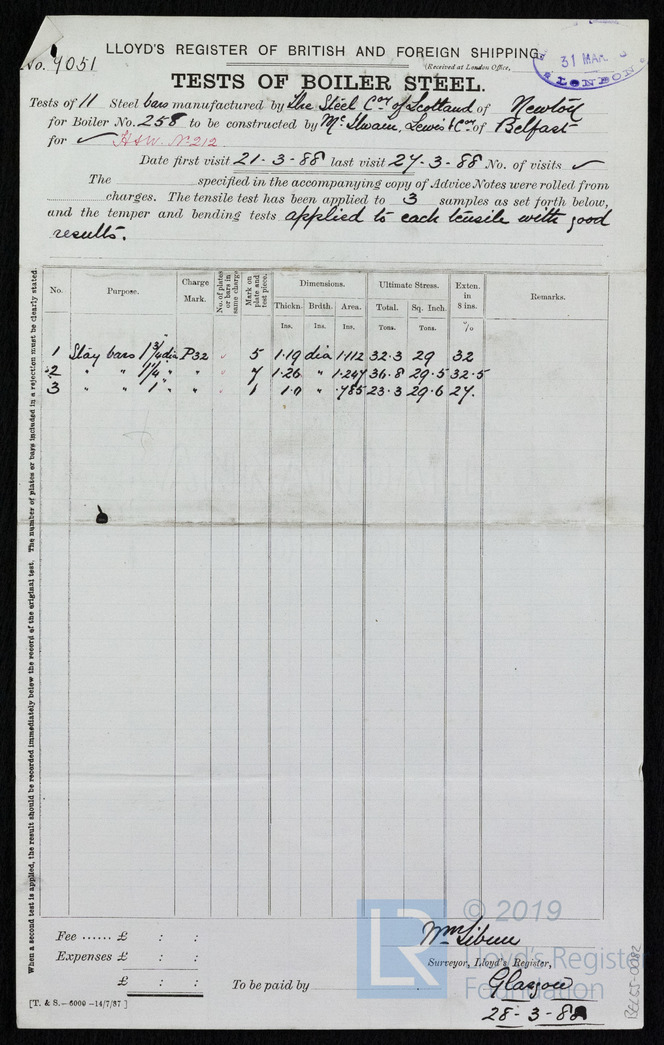 LLOYD'S REGISTER OF BRITISH AND FOREIGN SHIPPING.
No. 9051
(Received at London Office,
31 MAR
LONDON
TESTS OF BOILER STEEL.
Tests of 11 Steel bars manufactured by The Steel Coy of Scotland of Newton
for Boiler No. 258 to be constructed by McIlwain, Lewis & Coy of Belfast
for ✓ H&W. No 212
Date first visit 21-3-88 last visit 27-3-88 No. of visits ✓
The specified in the accompanying copy of Advice Notes were rolled from
charges. The tensile test has been applied to 3 samples as set forth below,
and the temper and bending tests applied to each tensile with good
results.
No. Purpose. Charge Mark. No. of plates or bars in same charge Mark on plate and test piece. Dimensions. Ultimate Stress. Exten. in 8 ins. Remarks.
Thickn. Brdth. Area. Total. Sq. Inch.
Ins. Ins. Ins. Tons. Tons. %
1 Stay bars 1 3/4 dia P32 ✓ 5 1.19 dia 1.112 32.3 29 32
2 " " 1 1/4 " " ✓ 7 1.26 " 1.247 36.8 29.5 32.5
3 " " 1 " " ✓ 1 1.0 " .785 23.3 29.6 27.
When a second test is applied, the result should be recorded immediately below the record of the original test. The number of plates or bars included in a rejection must be clearly stated.
Fee ...... £ : :
Expenses £ : :
£ : :
To be paid by
Surveyor, Lloyd's Register,
Glasgow
28-3-88
[T. & S.—6000—14/7/87]
LR
© 2019
Lloyd's Register
Foundation
BEL65-0082